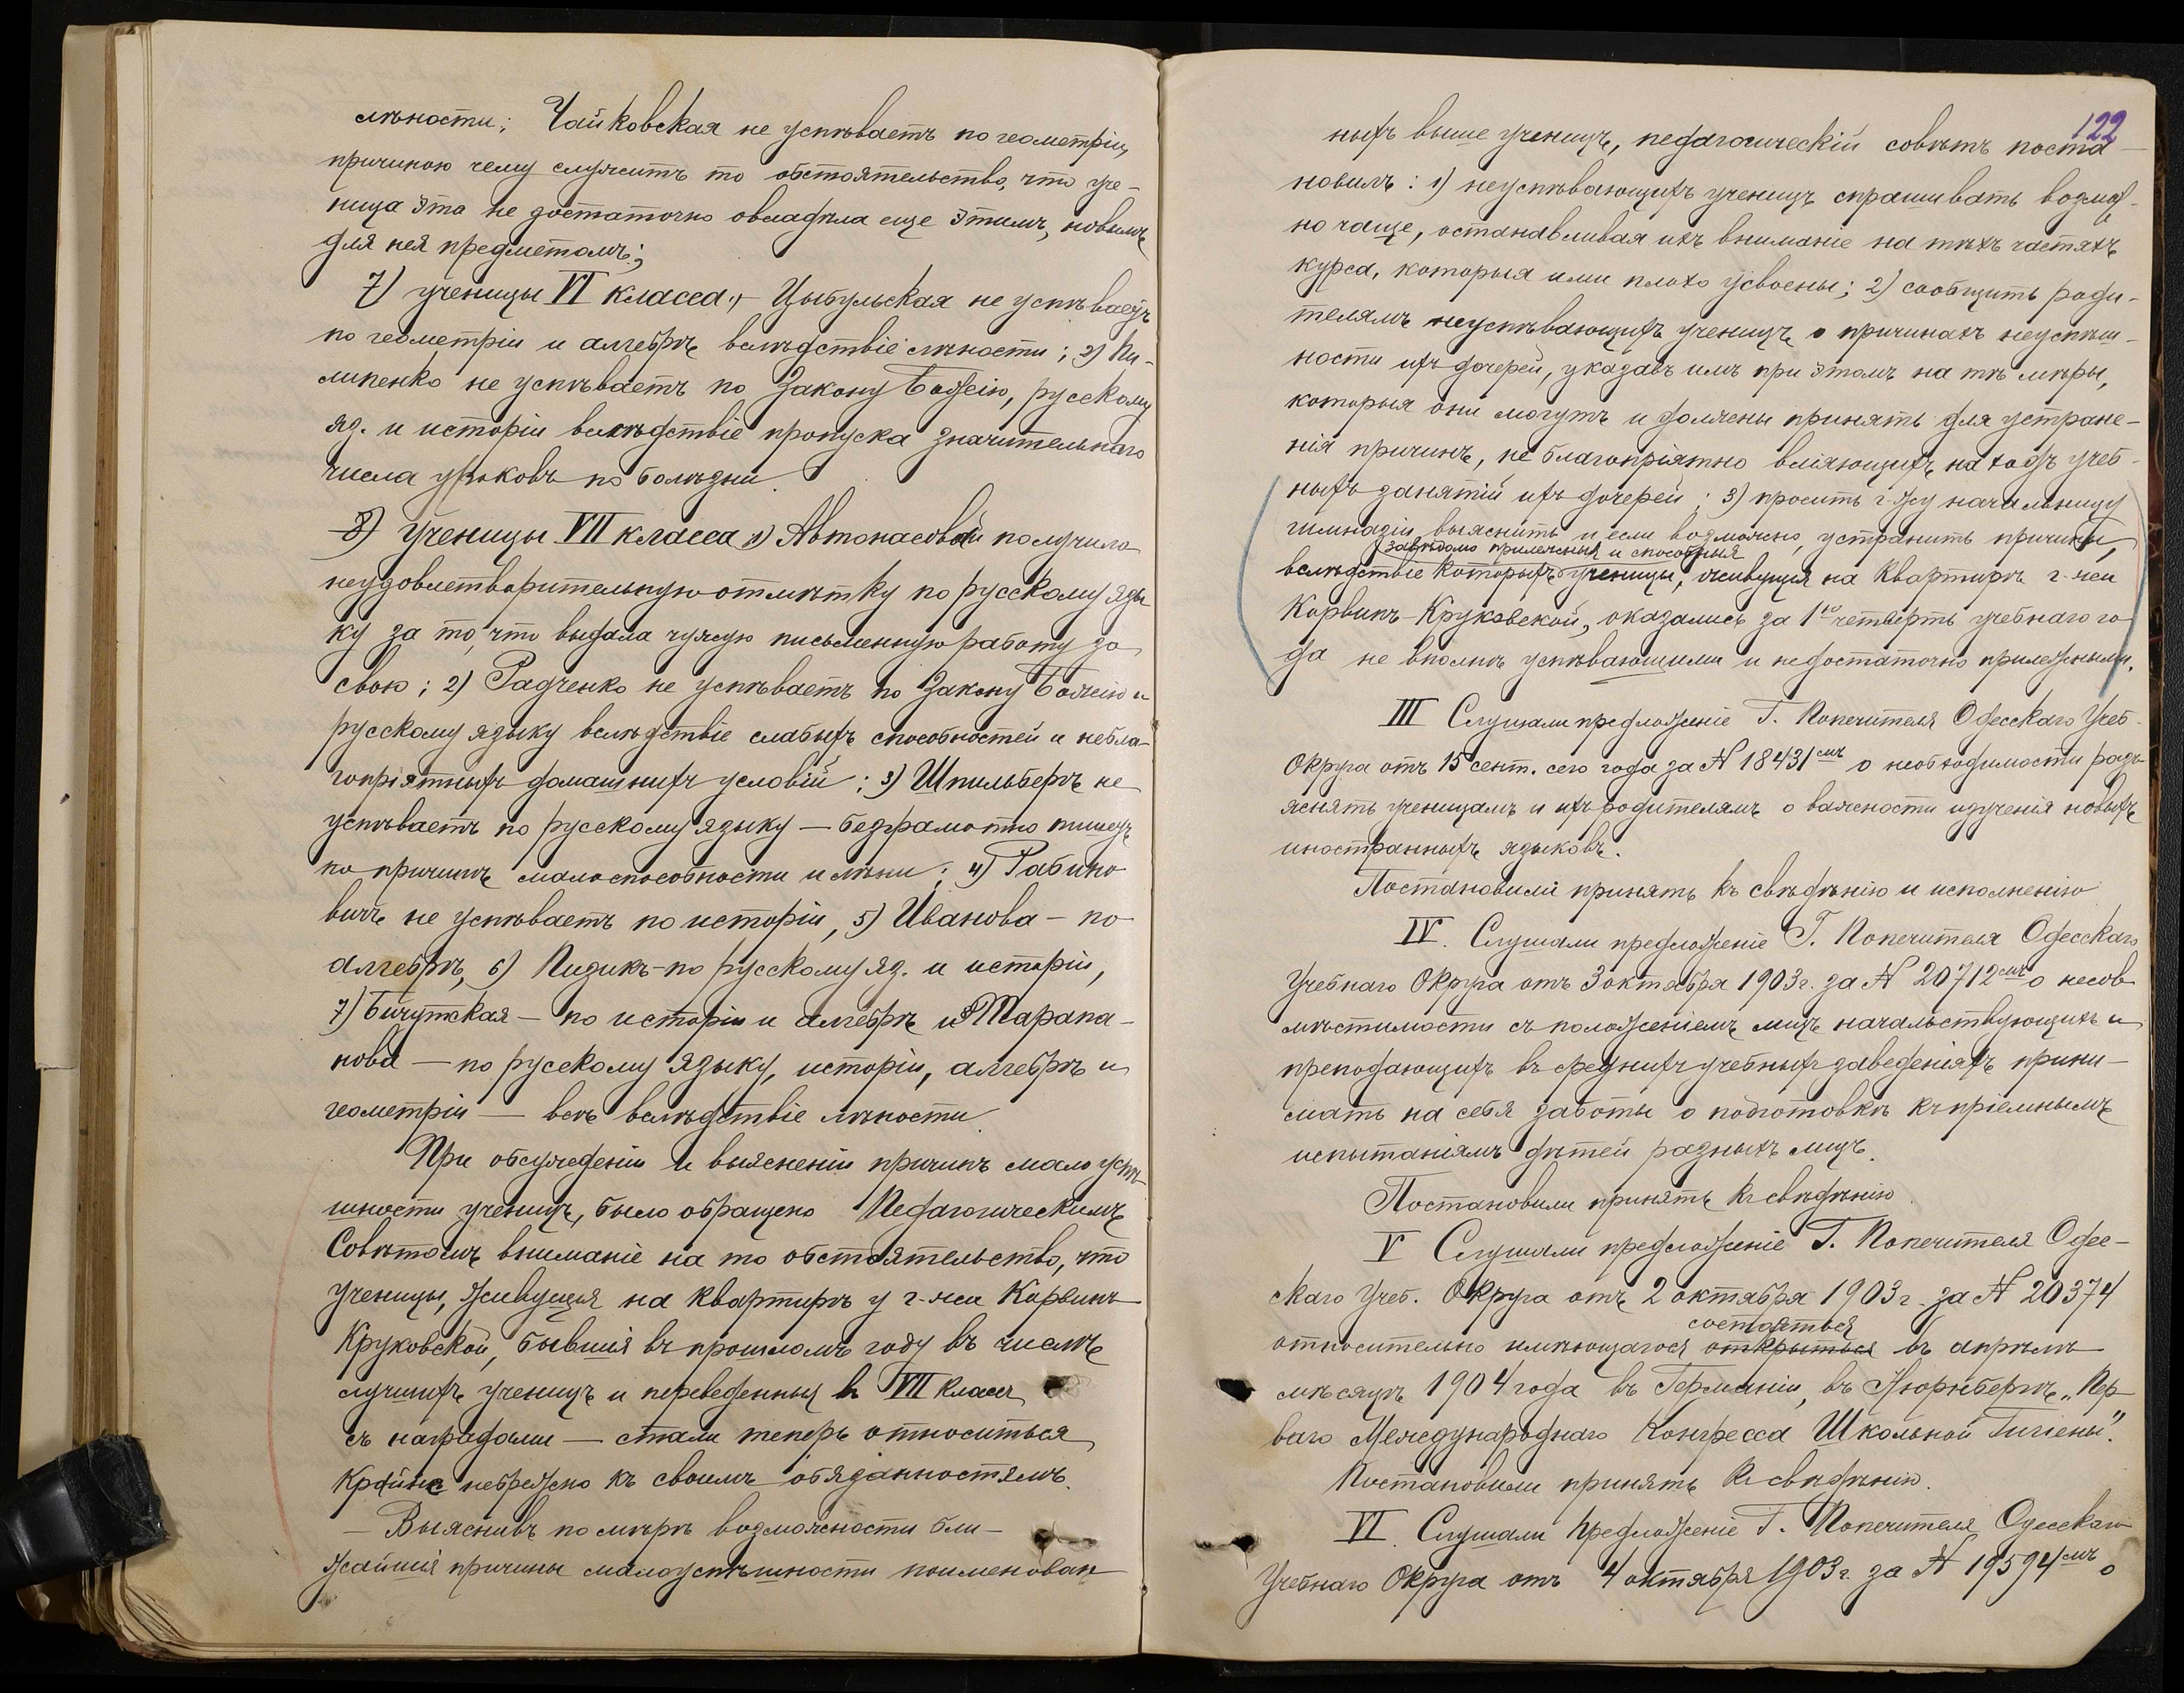 лѣности; Чайковская не успѣваетъ по геометріи,
причиною чему служитъ то обстоятельство, что уче-
ница эта не достаточно овладѣла еще этимъ, новымъ
для нея предметомъ;
7) ученицы VI класса: 1) Цыбульская не успѣваетъ
по геометріи и алгебрѣ вслѣдствіе лѣности; 2) Пи-
липенко не успѣваетъ по Закону Божію, русскому
яз. и исторіи вслѣдствіе пропуска значительнаго
числа уроковъ по болѣзни.
8) Ученицы VII класса 1) Автонасовой получила
неудовлетворительную отмѣтку по русскому язы
ку за то, что выдала чужую письменную работу за
свою; 2) Радченко не успѣваетъ по Закону Божію и
русскому языку вслѣдствіе слабыхъ способностей и небла-
гопріятныхъ домашнихъ условій; 3) Шпильбергъ не
успѣваетъ по русскому языку — безграмотно пишетъ
по причинѣ малоспособности и лѣни; 4) Рабино
вичъ не успѣваетъ по исторіи, 5) Иванова — по
алгебрѣ, 6) Пизикъ — по русскому яз. и исторіи,
7) Бичутская — по исторіи и алгебрѣ и 8) Тарапа-
нова — по русскому языку, исторіи, алгебрѣ и
геометріи — всѣ вслѣдствіе лѣности.
При обсужденіи и выясненіи причинъ мало успѣ-
шности ученицъ, было обращено Педагогическимъ
Совѣтомъ вниманіе на то обстоятельство, что
ученицы, живущія на квартирѣ у г-жи Корвинъ
Круковской, бывшія въ прошломъ году въ числѣ
лучшихъ ученицъ и переведенныя въ VII классъ
съ наградами — стали теперь относиться
крайне небрежно къ своимъ обязанностямъ.
— Выяснивъ по мѣрѣ возможности бли-
жайшія причины малоуспѣшности поименован
122
ныхъ выше ученицъ, педагогическій совѣтъ поста-
новилъ: 1) неуспѣвающихъ ученицъ спрашивать возмож-
но чаще, останавливая ихъ вниманіе на тѣхъ частяхъ
курса, которыя ими плохо усвоены; 2) сообщить роди-
телямъ неуспѣвающихъ ученицъ о причинахъ неуспѣш-
ности ихъ дочерей, указавъ имъ при этомъ на тѣ мѣры,
которыя они могутъ и должны принять для устране-
нія причинъ, не благопріятно вліяющихъ на ходъ учеб-
ныхъ занятій ихъ дочерей; 3) просить г-жу начальницу
гимназіи выяснить и если возможно, устранить причины,
завѣдомо прилежныя и способныя
вслѣдствіе которыхъ ученицы, живущія на квартирѣ г-жи
Корвинъ-Круковской, оказались за 1ю четверть учебнаго го
да не вполнѣ успѣвающими и недостаточно прилежными.
III Слушали предложеніе Г. Попечителя Одесскаго Учеб.
Округа отъ 15 сент. сего года за № 18431емъ о необходимости разъ
яснять ученицамъ и ихъ родителямъ о важности изученія новыхъ
иностранныхъ языковъ.
Постановили принять къ свѣдѣнію и исполненію
IV. Слушали предложеніе Г. Попечителя Одесскаго
Учебнаго Округа отъ 3 октября 1903 г. за № 20712емъ о несов
мѣстимости съ положеніемъ лицъ начальствующихъ и
преподающихъ въ среднихъ учебныхъ заведеніяхъ прини-
мать на себя заботы о подготовкѣ къ пріемнымъ
испытаніямъ дѣтей разныхъ лицъ.
Постановили принять къ свѣдѣнію.
V Слушали предложеніе Г. Попечителя Одес-
скаго Учеб. Округа отъ 2 октября 1903 г. за № 20374
состояться
относительно имѣющагося открыться въ апрѣлѣ
мѣсяцѣ 1904 года въ Германіи, въ Нюрнбергѣ „Пер
ваго Международнаго Конгресса Школьной Гигіены".
Постановили принять къ свѣдѣнію.
VI. Слушали предложеніе Г. Попечителя Одесскаго
Учебнаго Округа отъ 4 октября 1903 г. за № 19594емъ о